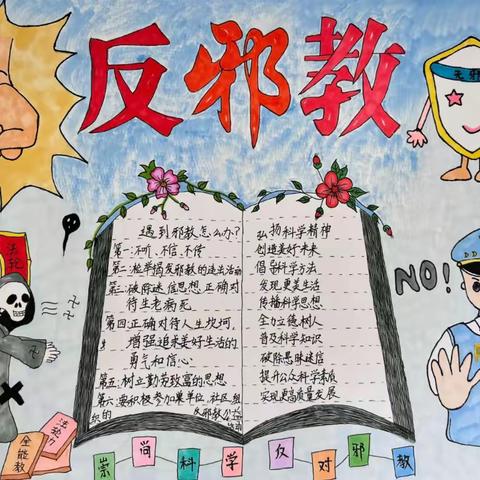 反邪教
无邪
遇到邪教怎么办?
第一:不听、不信、不传
第二:检举揭发邪教的违法活动
第三:破除迷信思想,正确对
待生老病死
第四:正确对待人生坎坷,
增强追求美好生活的
勇气和信心
第五:树立勤劳致富的思想
第六:要积极参加单位、社区组
织的
反邪教公益
活动
弘扬科学精神
创造美好未来
倡导科学方法
发现更美生活
传播科学思想
全力立德树人
普及科学知识
破除愚昧迷信
提升公众科学素质
实现更高质量发展
NO!
法轮
法轮功
全能教
崇尚科学反对邪教